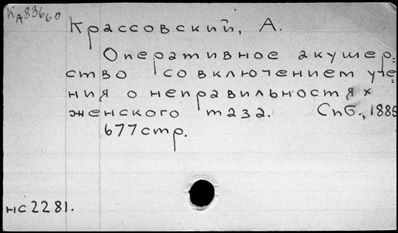 КА83660
Крассовский, А.
Оперативное акушер-
ство со включением уче-
ния о неправильностях
женского таза. Спб., 1885
677стр.
нс2281.